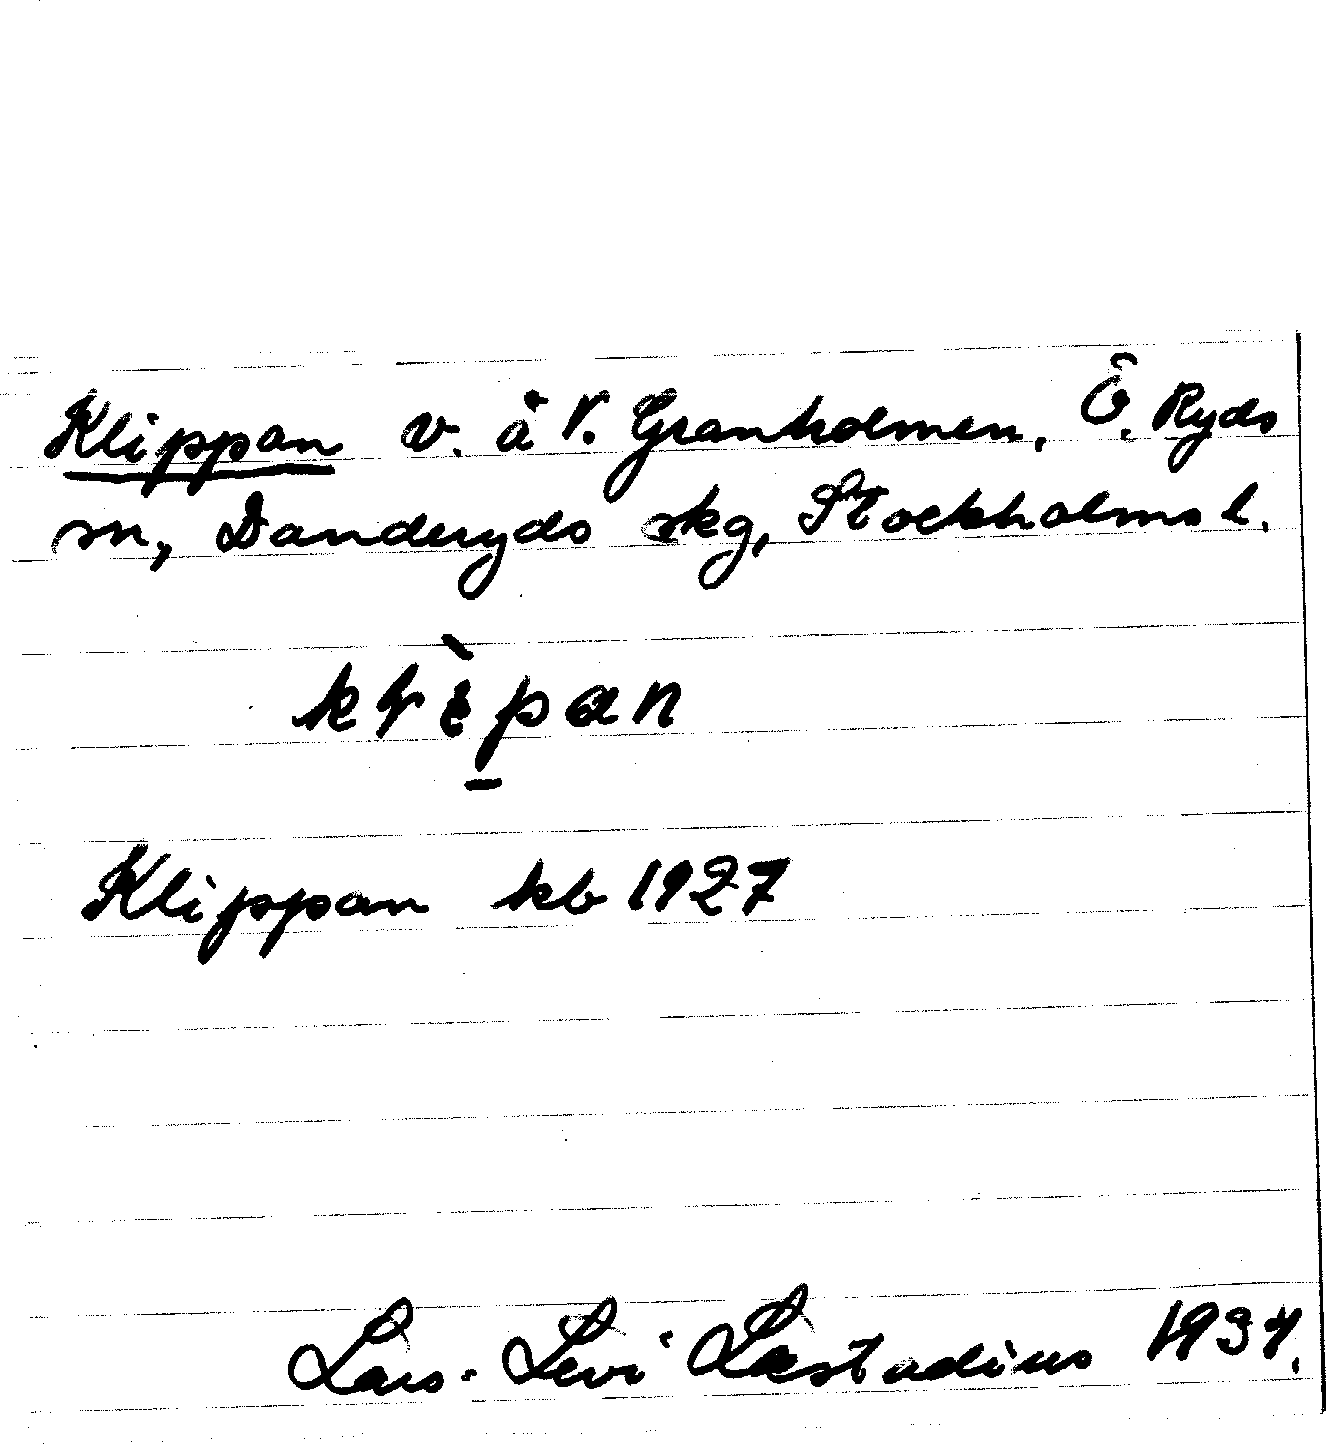 Klippan v. å V. Granholmen, Ö. Ryds
sn, Danderyds skg, Stockholms l.
Klippan kb 1927
Lars-Levi Læstadius 1934.